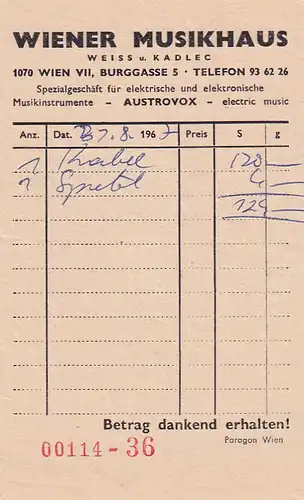 WIENER MUSIKHAUS
WEISS u. KADLEC
1070 WIEN VII, BURGGASSE 5 · TELEFON 93 62 26
Spezialgeschäft für elektrische und elektronische
Musikinstrumente - AUSTROVOX - electric music
Anz. Dat. 7.8. 1967 Preis S g
1 Kabel 120
4
124
Betrag dankend erhalten!
00114 - 36 Paragon Wien